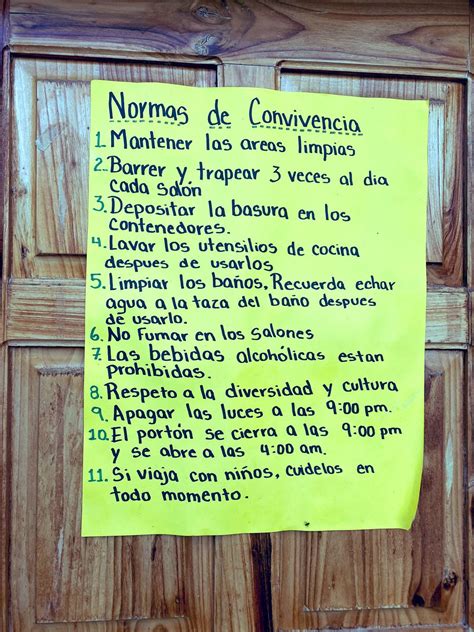 Normas de Convivencia
1. Mantener las areas limpias
2. Barrer y trapear 3 veces al dia
cada salón
3. Depositar la basura en los
contenedores.
4. Lavar los utensilios de cocina
despues de usarlos
5. Limpiar los baños, Recuerda echar
agua a la taza del baño despues
de usarlo.
6. No Fumar en los salones
7. Las bebidas alcohólicas estan
prohibidas.
8. Respeto a la diversidad y cultura
9. Apagar las luces a las 9:00 pm.
10. El portón se cierra a las 9:00 pm
y se abre a las 4:00 am.
11. Si viaja con niños, cuidelos en
todo momento.